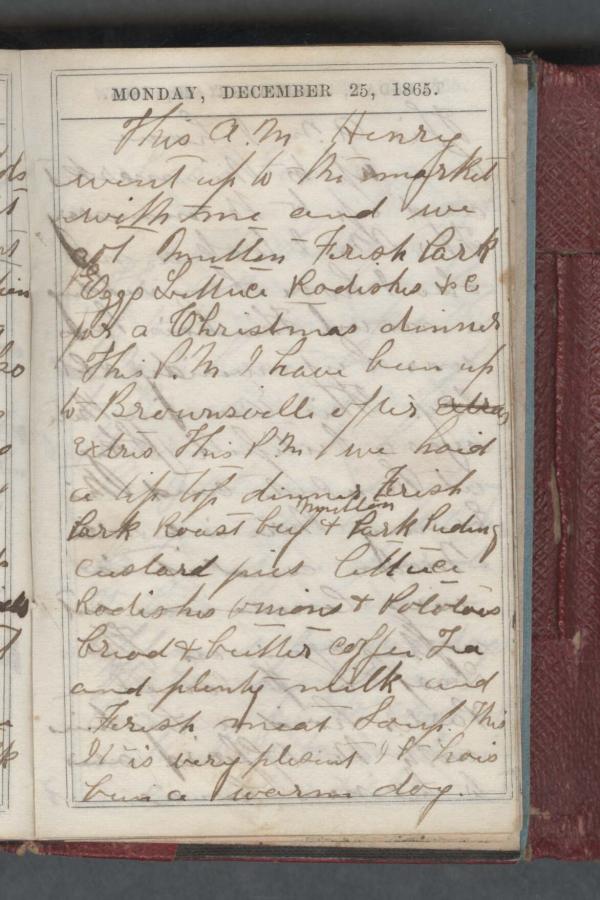 MONDAY, DECEMBER 25, 1865.
This A.M Henry
went up to the market
with me and we
got Mutten Frish Park
Eggs Lettuce Radishes & c
for a Christmas dinner
This P.M I have been up
to Brownsville after extras
extrs This P.M we haid
a tip top dinner Frish
Park Roast beef mutton & Park Puding
custard pies lettuce
Radishes onions & Potatoes
bread & butter coffee Tea
and plenty milk and
Frish meat Soup. This
It is very plesent It hais
been a warm day.